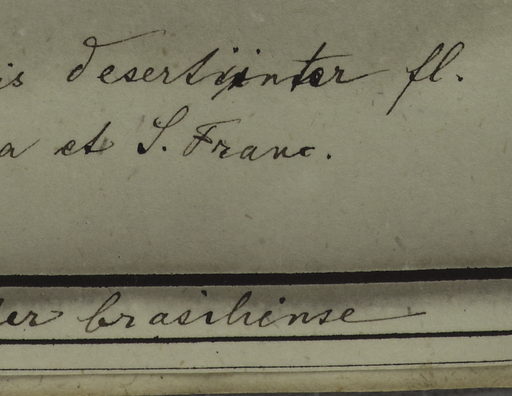 is deserti inter fl.
a et S. Franc.
er brasiliense